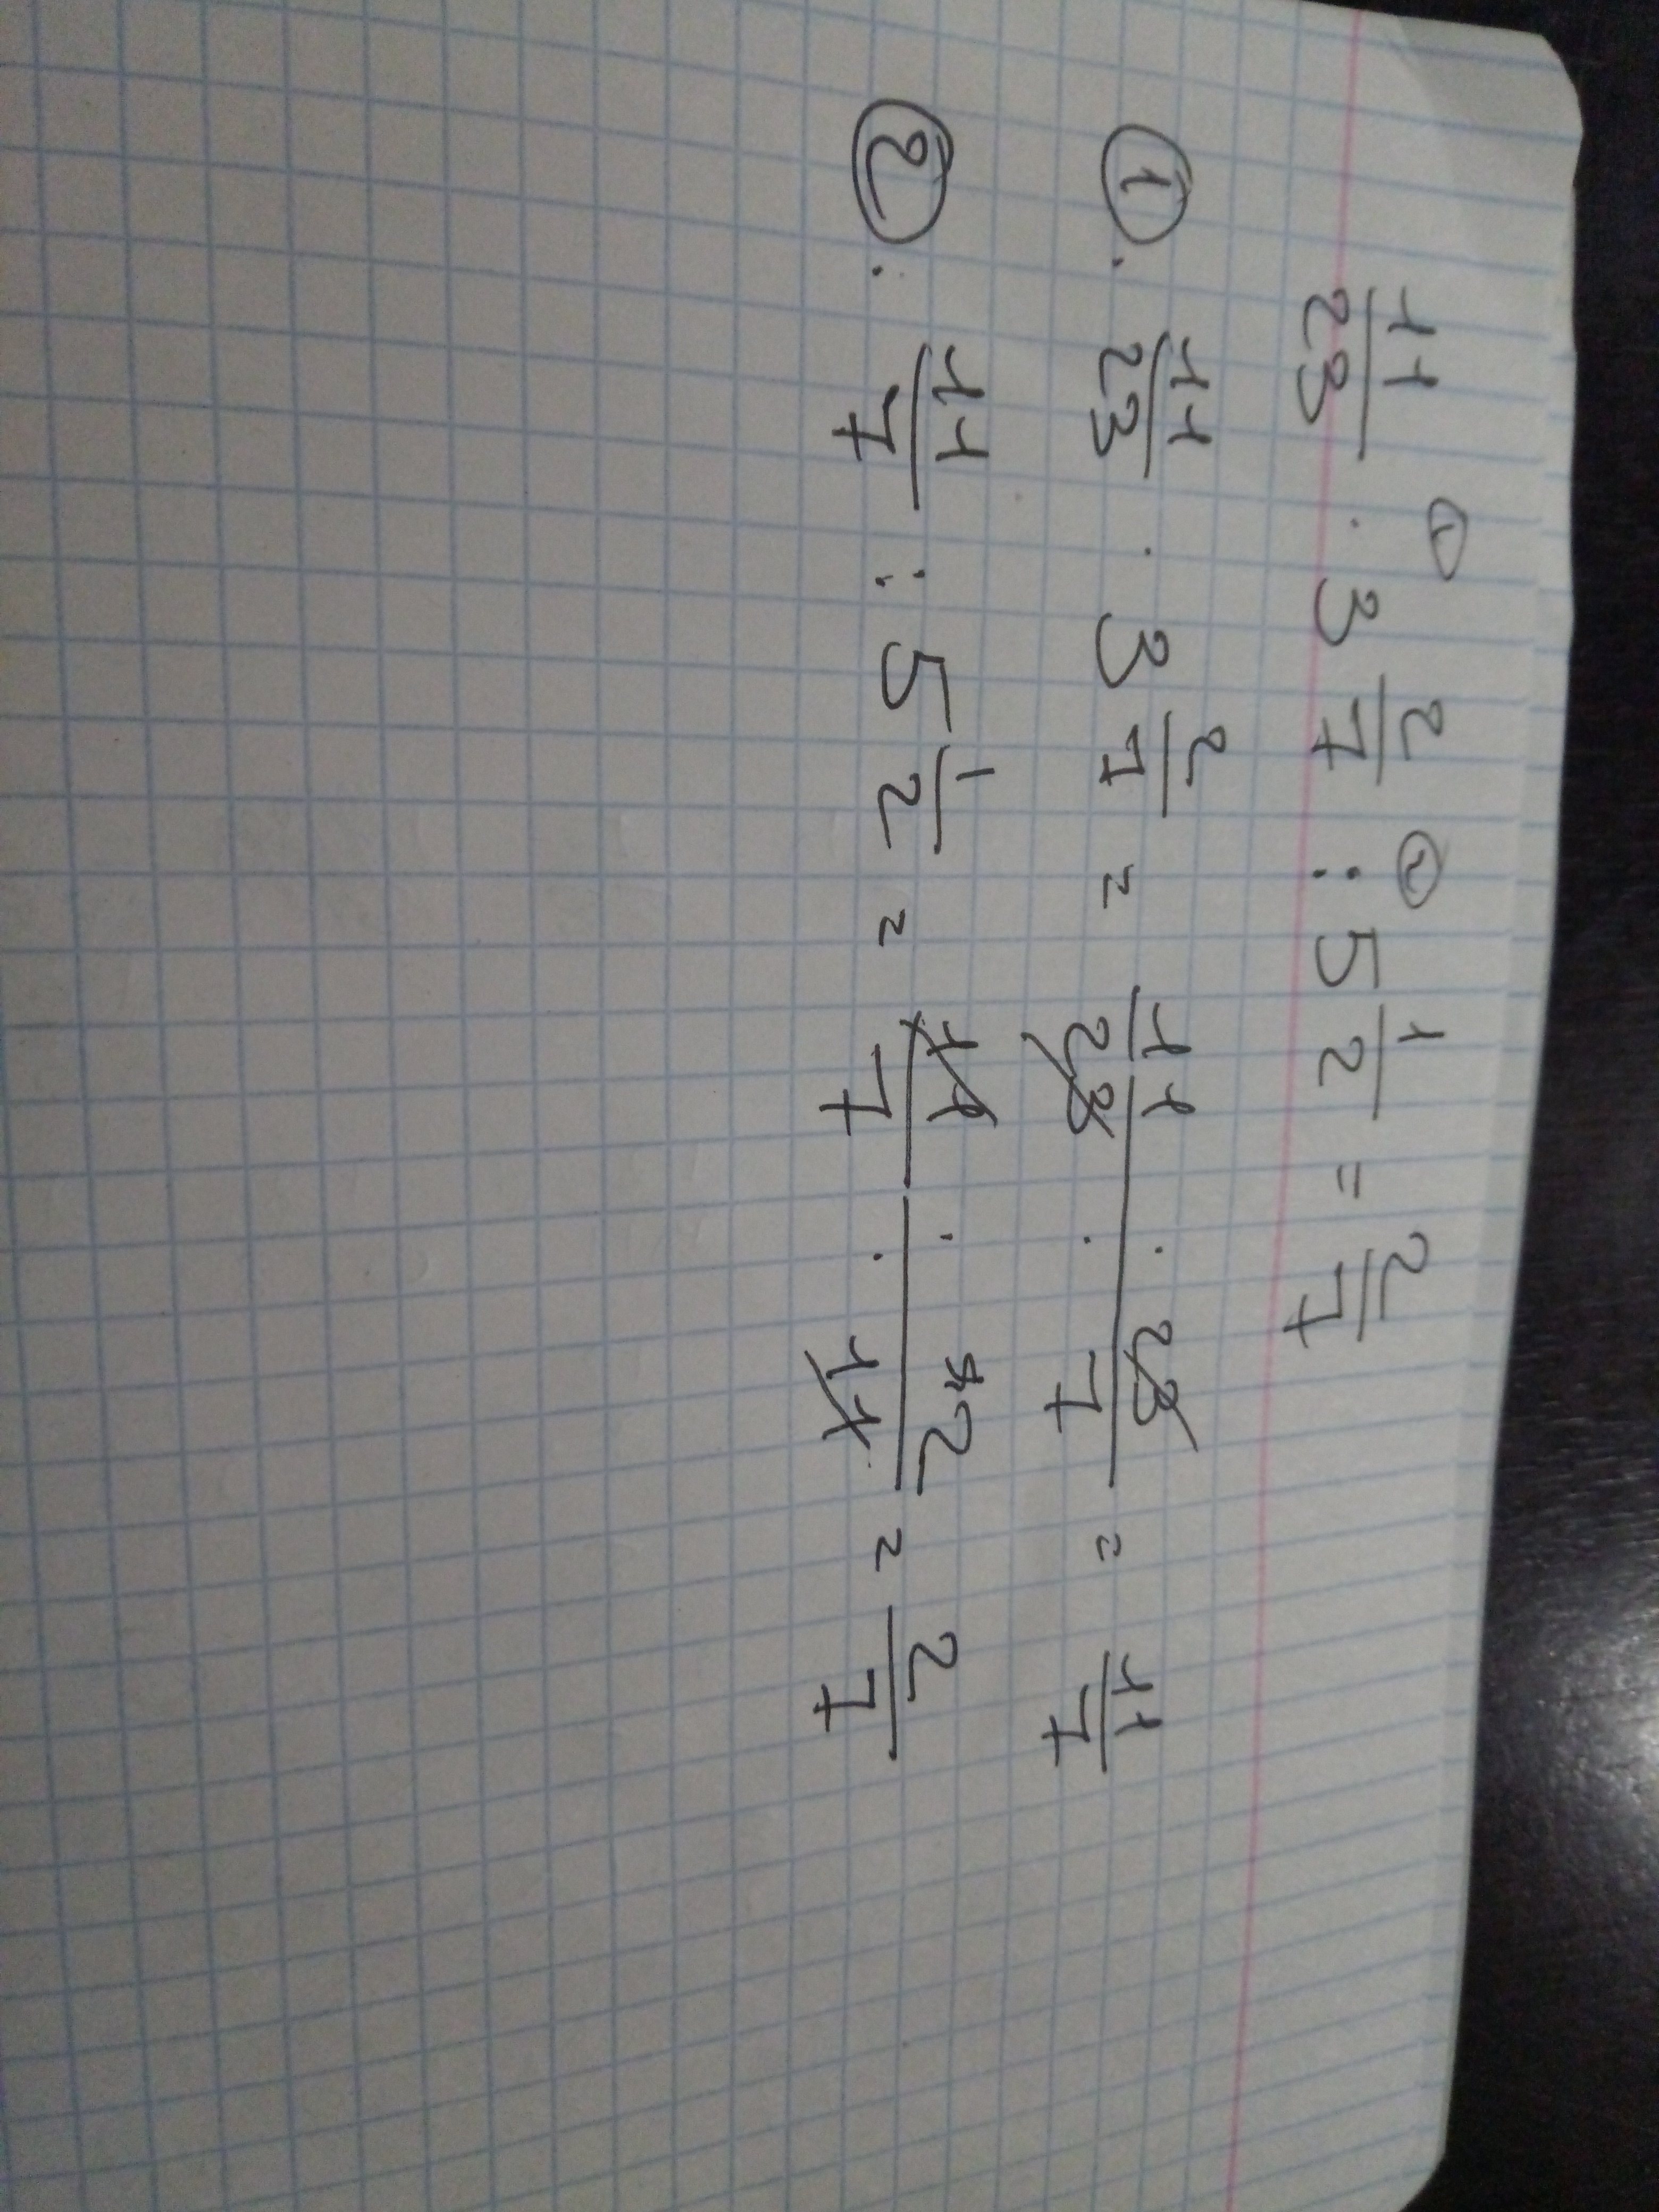 ① ②
11/23 · 3 2/7 : 5 1/2 = 2/7
①. 11/23 · 3 2/7 = 11 · 23 / 23 · 7 = 11/7
②. 11/7 : 5 1/2 = 11 · 2 / 7 · 11 = 2/7